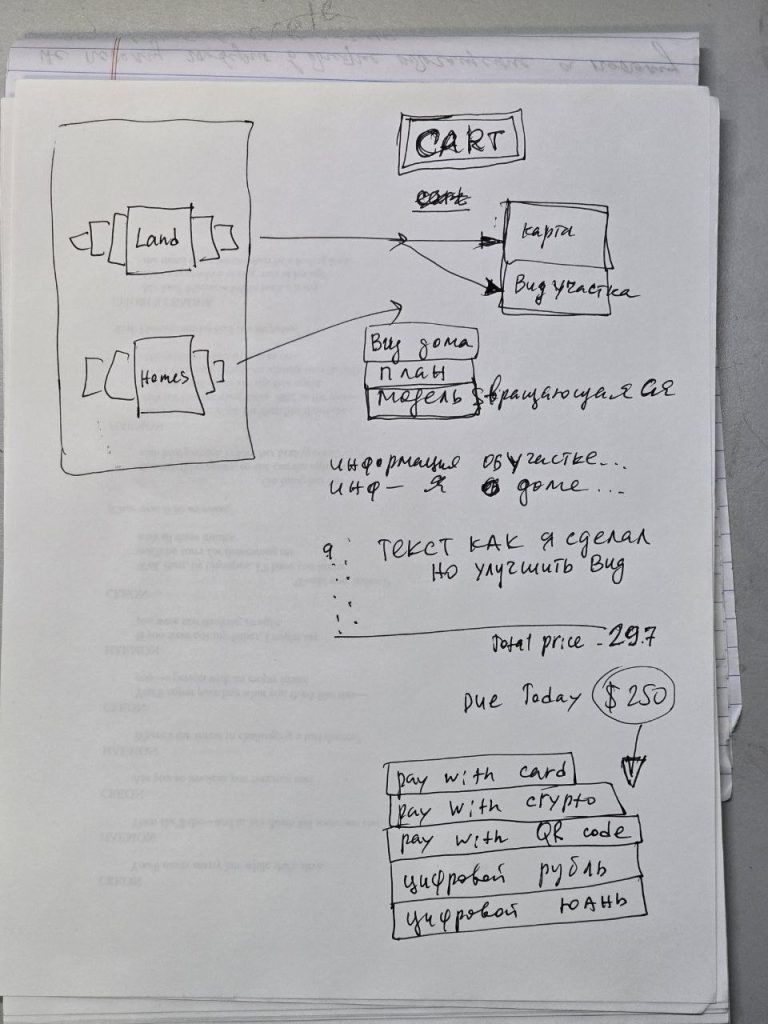 CART
Land
карта
Вид участка
Homes
Вид дома
план
модель вращающаяся
информация об участке...
инф-я о доме...
ТЕКСТ КАК Я СДЕЛАЛ
НО УЛУЧШИТЬ ВИД
Total price - 297
Due Today $250
pay with card
pay with crypto
pay with QR code
цифровой рубль
цифровой ЮАНЬ